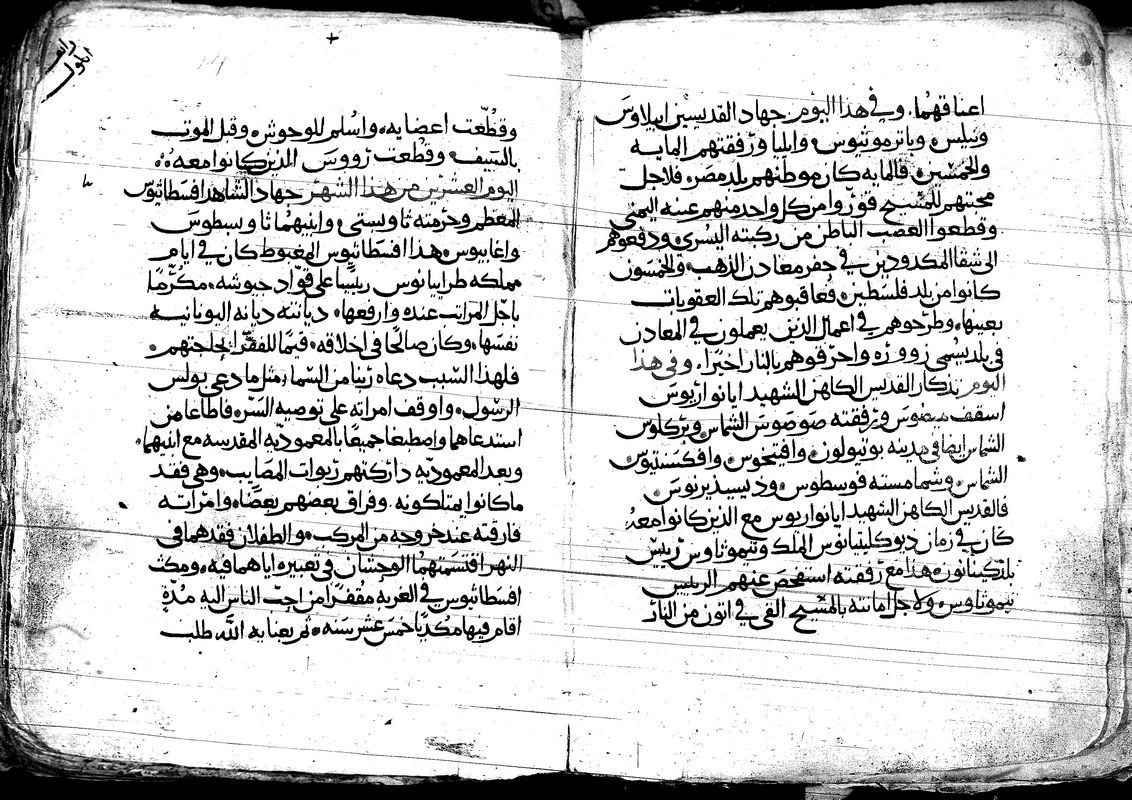 اعناقهما. وفي هذا اليوم جهاد القديسين ابيلاوس
ونيلس، وباترموثيوس، وايليا ورفقتهم المايه
والخمسين، فالمايه كان موطنهم بلد مصر، فلاجل
محبتهم للمسيح قوروا من كل واحد منهم عينه اليمني
وقطعوا العصب الباطن من ركبته اليسري، ودفعوهم
الى شقا المكدودين في حفر معادن الذهب، والخمسون
كانوا من بلد فلسطين، فعاقبوهم تلك العقوبات
بعينها، وطرحوهم في اعمال الذين يعملون في المعادن
في بلد يسمى زووره واحرقوهم بالنار اخيرا. وفى هذا
اليوم تذكار القديس الكاهن الشهيد ايانواريوس
اسقف ورفقته صوصوس الشماس وبركلوس
الشماس ايضا في مدينه بوتيولون، وافتيخوس، وافكنستيوس
الشماس، وشمامسته فوسطوس، وديسيذيريوس
فالقديس الكاهن الشهيد ايانواريوس مع الذين كانوا معه
كان في زمان ديوكليتيانوس الملك وتيموثاوس رييس
بلد كبنانون، هذا مع رفقته استفحص عنهم الرييس
تيموثاوس، ولاجل امانته بالمسيح القي في اتون من النار
رابع
ايلول
وقطعت اعضايه، واسلم للوحوش، وقبل الموت
بالسيف، وقطعت رووس الذين كانوا معه
اليوم العشرين من هذا الشهر جهاد الشاهد افسطاثيوس
المعظم وحرمته ثاوبستي، وابنيهما ثاوبسطوس
واغابيوس، هذا افسطاثيوس المغبوط كان في ايام
مملكه طرايانوس رييسا على قواد جيوشه، مكرما
باجل المراتب عنده وارفعها، ديانته ديانه اليونانيه
نفسها، وكان صالحا في اخلاقه، قيما للفقرا بحاجتهم
فلهذا السبب دعاه ربنا من السما، مثل ما دعى بولس
الرسول، واوقف امراته على توصيه السر، فاطاعا من
استدعاهما واصطبغا جميعا بالمعموديه المقدسه مع ابنيهما
وبعد المعموديه داركتهم ربوات المصايب، وهي فقد
ما كانوا يمتلكونه، وفراق بعضهم بعضا، وامراته
فارقته عند خروجه من المركب، والطفلان فقدهما في
النهر اقتسمتهما الوحشان في تعبيره اياهما فيه، ومكث
افسطاثيوس في الغربه مقفرا من احب الناس اليه مدة
اقام فيها مكديا خمس عشر سنه، ثم بعنايه الله، طلب